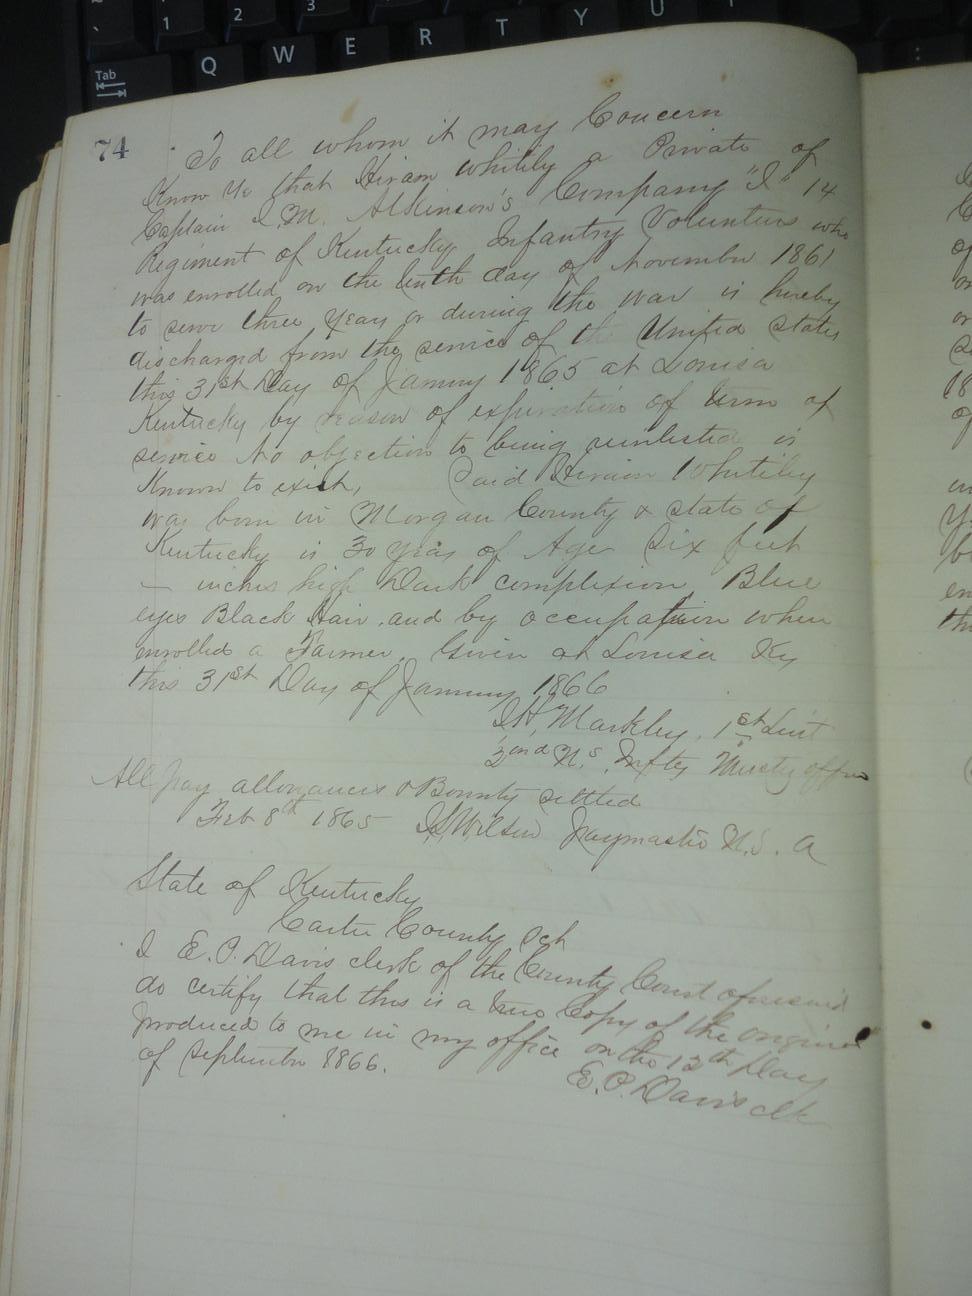 1 2 3
Tab Q W E R T Y U
74
To all whom it may Concern
Know Ye that Hiram Whitily a Private of
Captain I. M. Atkinson's Company "I" 14
Regiment of Kentucky Infantry Volunteers who
was enrolled on the tenth day of November 1861
to serve three years or during the war is hereby
discharged from the service of the United States
this 31st Day of January 1865 at Louisa
Kentucky by reason of expiration of term of
service No objection to being reenlisted is
Known to exist, Said Hiram Whitiley
was born in Morgan County & state of
Kentucky is 30 years of Age Six feet
— inches high Dark complexion, Blue
eyes Black Hair, and by occupation when
enrolled a Farmer. Given at Louisa Ky
this 31st Day of January 1866
Markley, 1st Leut
2nd Infty Mustg
All pay allowances & Bounty settled
Feb 8th 1865 Wilson Paymaster U.S. A
State of Kentucky
Carter County Sct
I E. P. Davis clerk of the County Court aforesaid
do certify that this is a true Copy of the original
produced to me in my office on the 12th Day
of September 1866.
E. P. Davis clk